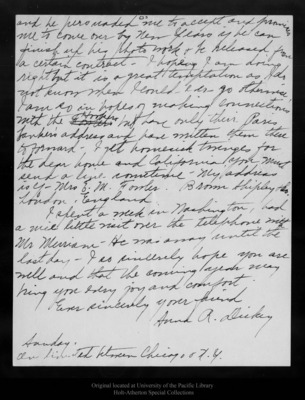 and he persuaded me to accept and
me to come over by New Years if he can
finish up his photo work & be released from
a certain contract - I hoping I am doing
right but it is a great temptation as I do
not know when I could ever go otherwise.
I am in hopes of making connections
with the but have only their Paris
bankers address and have written them there
to forward - I get homesick for
the dear home and California you must
send a line sometime - My address
is c/o Mrs. E. M. Fowler.
London. England
I spent a week in Washington, had
a nice little visit over the telephone with
Mr Merriam - He was away until the
last day - I so sincerely hope you are
well and that the coming year may
bring you every joy and comfort.
Ever sincerely your friend
Anna R. Dickey
Sunday.
Chicago & N.Y.
Original located at University of the Pacific Library
Holt-Atherton Special Collections